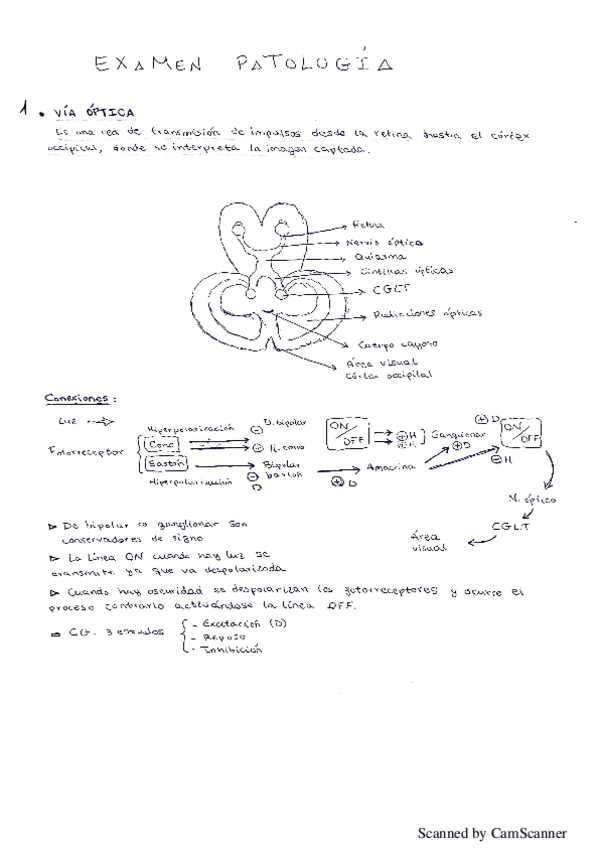 EXAMEN PATOLOGÍA
1 • VÍA ÓPTICA
Es una red de transmisión de impulsos desde la retina hasta el córtex
occipital, donde se interpreta la imagen captada.
Retina
Nervio óptico
Quiasma
Cintillas ópticas
CGLT
Radiaciones ópticas
Cuerpo calloso
Área visual
Córtex occipital
Conexiones:
Luz
Hiperpolarización
D. bipolar
ON/OFF
H
H
Ganglionar
D
D
ON/OFF
Fotorreceptor
Cono
H. cono
Bastón
Bipolar
bastón
D
Amacrina
D
H
Hiperpolarización
N. óptico
CGLT
Área
visual
▷ De bipolar a ganglionar son
conservadores de signo
▷ La línea ON cuando hay luz se
transmite ya que va despolarizada
▷ Cuando hay oscuridad se despolarizan los fotorreceptores y ocurre el
proceso contrario activándose la línea OFF.
CG. 3 estados
- Excitación (D)
- Reposo
- Inhibición
Scanned by CamScanner